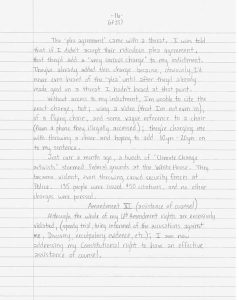 -16-
The 'plea agreement' came with a threat. I was told
that if I didn't accept their ridiculous plea agreement,
that they'd add a 'very serious charge' to my indictment.
They've already added this charge because, obviously, I'd
never even heard of the 'plea' until after they'd already
made good on a threat I hadn't heard at that point.
Without access to my indictment, I'm unable to cite the
exact charge, but; using a video (that I'm not even in),
of a flying chair, and some vague reference to a chair
(from a phone they illegally accessed); they're charging me
with throwing a chair and hoping to add 10yrs - 20yrs on
to my sentence.
Just over a month ago, a bunch of "Climate Change
activists" stormed Federal grounds at the White House. They
became violent, even throwing crowd security fences at
Police. 155 people were issued $50 citations, and no other
charges were pressed.
Amendment VI (assistance of counsel)
Although the whole of my 6th Amendment rights are excessively
violated, (speedy trial, being informed of the accusations against
me, Discovery, exculpatory evidence, etc.); I am now
addressing my Constitutional right to have an effective
assistance of counsel.